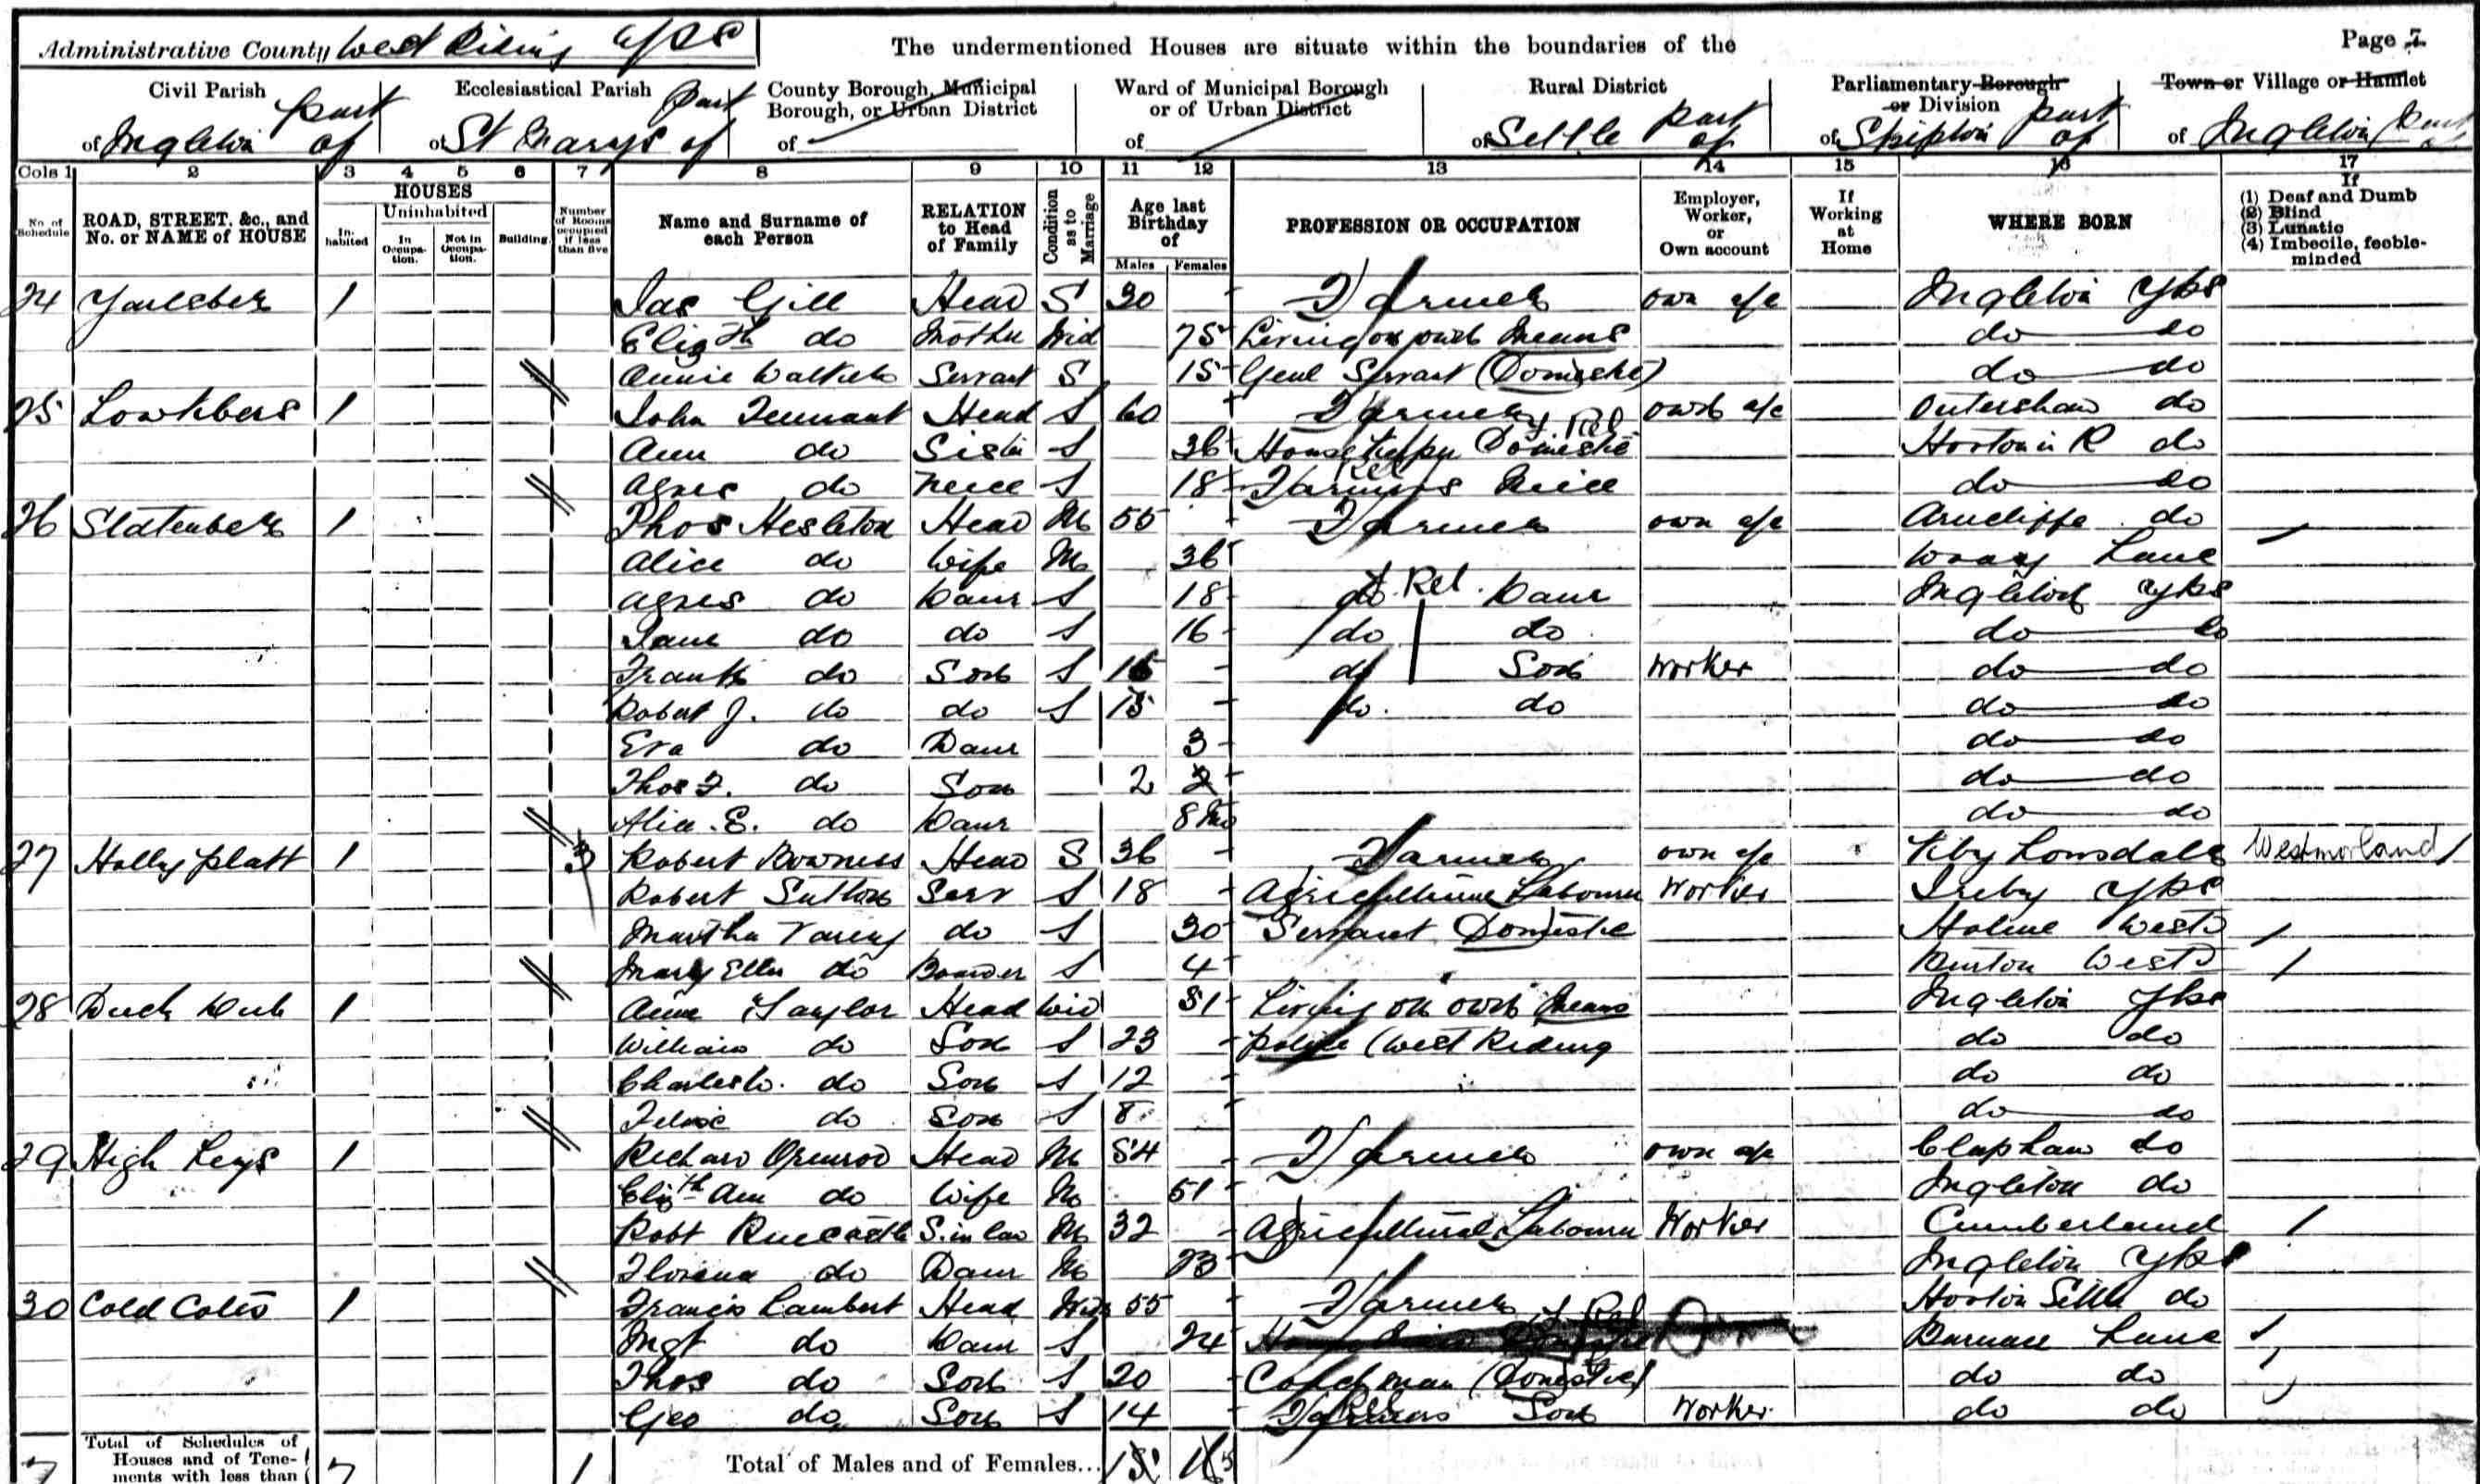 Administrative County West Riding Yks
The undermentioned Houses are situate within the boundaries of the
Page 7
Civil Parish
of Ingleton part of
Ecclesiastical Parish
of St Marys part of
County Borough, Municipal Borough, or Urban District
of
Ward of Municipal Borough or of Urban District
of
Rural District
of Settle part of
Parliamentary Borough or Division
of Skipton part of
Town or Village or Hamlet
of Ingleton part
Cols 1 2 3 4 5 6 7 8 9 10 11 12 13 14 15 16 17
No. of Schedule
ROAD, STREET, &c., and No. or NAME of HOUSE
HOUSES
In-habited
Uninhabited
In Occupa-tion.
Not in Occupa-tion.
Building.
Number of Rooms occupied if less than five
Name and Surname of each Person
RELATION to Head of Family
Condition as to Marriage
Age last Birthday of
Males Females
PROFESSION OR OCCUPATION
Employer, Worker, or Own account
If Working at Home
WHERE BORN
If
(1) Deaf and Dumb
(2) Blind
(3) Lunatic
(4) Imbecile, feeble-minded
24 Yarlsber 1 Jas Gill Head S 30 Farmer own a/c Ingleton Yks
Elizth do Mother Wid 75 Living on own Means do do
Annie Walker Servant S 15 Genl Servant (Domestic) do do
25 Lowkbers 1 John Tennant Head S 60 Farmer own a/c Outershaw do
Ann do Sister S 36 Housekeeper Domestic Rel Horton in R do
Agnes do Neice S 18 Farmers Neice Rel do do
26 Slatenber 1 Thos Hesleton Head M 55 Farmer own a/c Arncliffe do
Alice do Wife M 36 Wray Lanc
Agnes do Daur S 18 do Rel. Daur Ingleton Yks
Jane do do S 16 do do do do
Frank do Son S 16 do Son Worker do do
Robert J. do do S 15 do. do do do
Eva do Daur 3 do do
Thos F. do Son 2 2 do do
Alice. E. do Daur 8 Mo do do
27 Holly Platt 1 3 Robert Bowness Head S 36 Farmer own a/c Kby Lonsdale Westmorland
Robert Sutton Serv S 18 Agricultural Labourer Worker Ireby Yks
Martha Varey do S 30 Servant Domestic Holme Westd
Mary Ellen do Boarder S 4 Burton Westd
28 Duck Dub 1 Ann Taylor Head Wid 51 Living on own Means Ingleton Yks
William do Son S 23 Police (West Riding do do
Charles W. do Son S 12 do do
Felix do Son S 8 do do
29 High Leys 1 Richard Ormrod Head M 54 Farmer own a/c Clapham do
Elizth Ann do Wife M 51 Ingleton do
Robt Ruecastle S. in law M 32 Agricultural Labourer Worker Cumberland
Florence do Daur M 23 Ingleton Yks
30 Cold Cotes 1 Francis Lambert Head Wid 55 Farmer Horton Settle do
Mgt do Daur S 24 Rel Lanc
Thos do Son S 20 Coachman (Domestic) do do
Geo do Son S 14 Farmers Son Worker do do
7 Total of Schedules of Houses and of Tene-ments with less than 7 1 Total of Males and of Females... 15